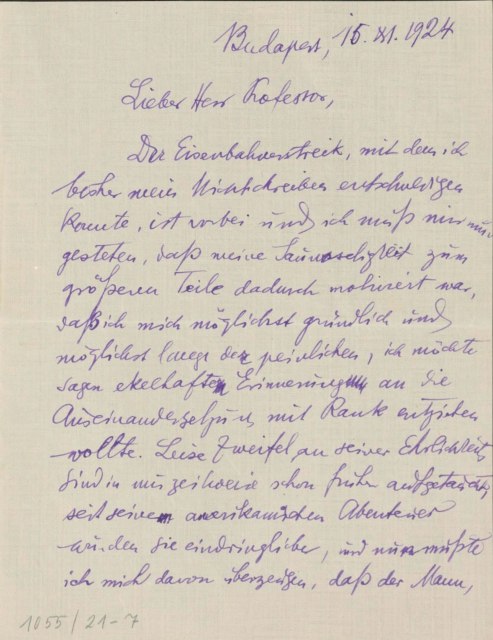 Budapest, 15. XI. 1924
Lieber Herr Professor,
Der Eisenbahnerstreik, mit dem ich
bisher mein Nichtschreiben entschuldigen
konnte, ist vorbei und ich muß mir nun
gestehen, daß meine Saumseligkeit zum
größeren Teile dadurch motiviert war,
daß ich mich möglichst gründlich und
möglichst lange der peinlichen, ich möchte
sagen ekelhaften Erinnerung an die
Auseinandersetzung mit Rank entziehen
wollte. Leise Zweifel an seiner Ehrlichkeit
sind in mir zeitweise schon früher aufgetaucht,
seit seinem amerikanischen Abenteuer
wurden sie eindringlicher, und nun mußte
ich mich davon überzeugen, daß der Mann,
1055/21-7